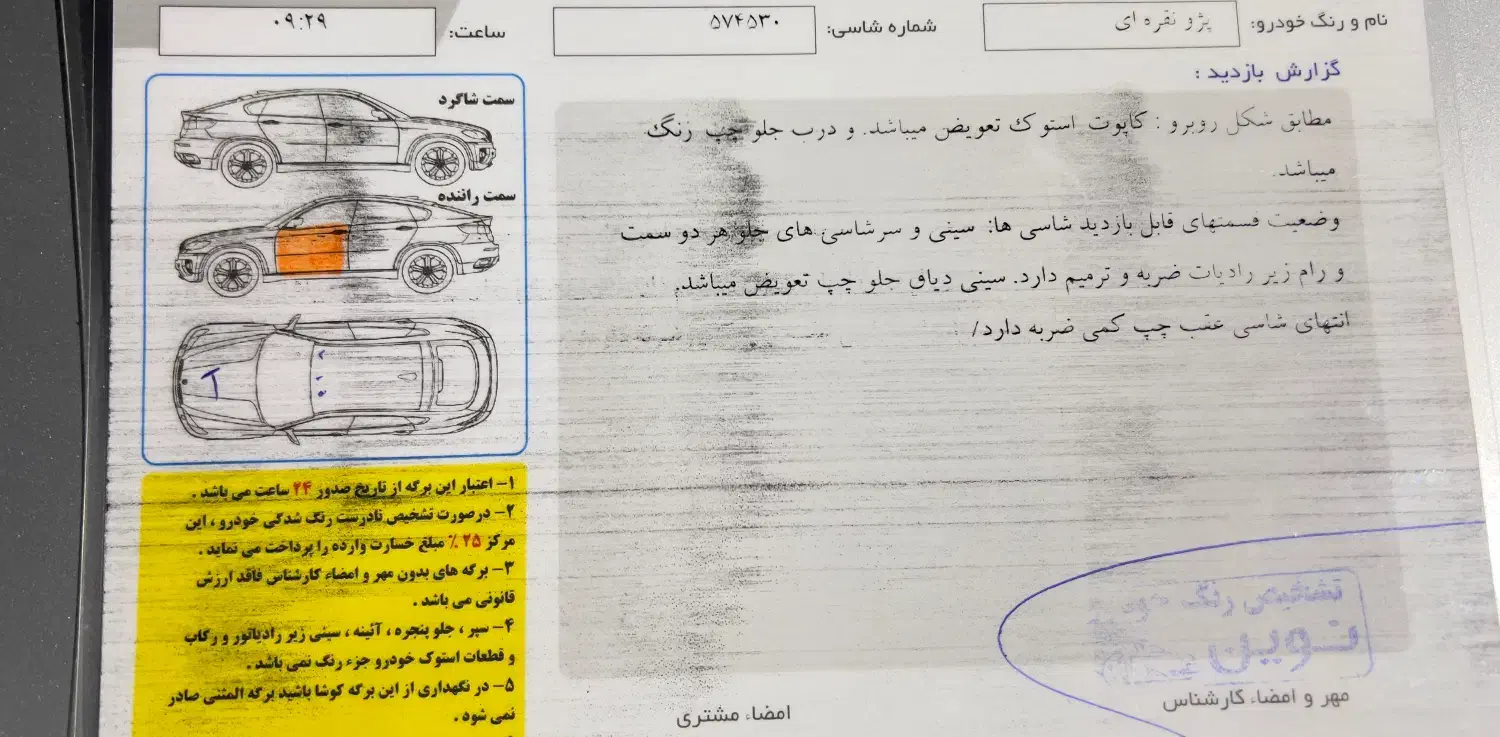 نام و رنگ خودرو: پژو نقره ای
شماره شاسی: ۵۷۴۵۳۰
ساعت: ۰۹:۲۹
گزارش بازدید :
مطابق شکل روبرو : کاپوت استوک تعویض میباشد. و درب جلو چپ رنگ
میباشد.
وضعیت قسمتهای قابل بازدید شاسی ها: سینی و سرشاسی های جلو هر دو سمت
و رام زیر رادیات ضربه و ترمیم دارد. سینی دیاق جلو چپ تعویض میباشد.
انتهای شاسی عقب چپ کمی ضربه دارد/
سمت شاگرد
سمت راننده
۱- اعتبار این برگه از تاریخ صدور ۲۴ ساعت می باشد .
۲- درصورت تشخیص نادرست رنگ شدگی خودرو ، این
مرکز ۲۵ ٪ مبلغ خسارت وارده را پرداخت می نماید .
۳- برگه های بدون مهر و امضاء کارشناس فاقد ارزش
قانونی می باشد .
۴- سپر ، جلو پنجره ، آئینه ، سینی زیر رادیاتور و رکاب
و قطعات استوک خودرو جزء رنگ نمی باشد .
۵- در نگهداری از این برگه کوشا باشید برگه المثنی صادر
نمی شود .
تشخیص رنگ
نوین
مهر و امضاء کارشناس
امضاء مشتری